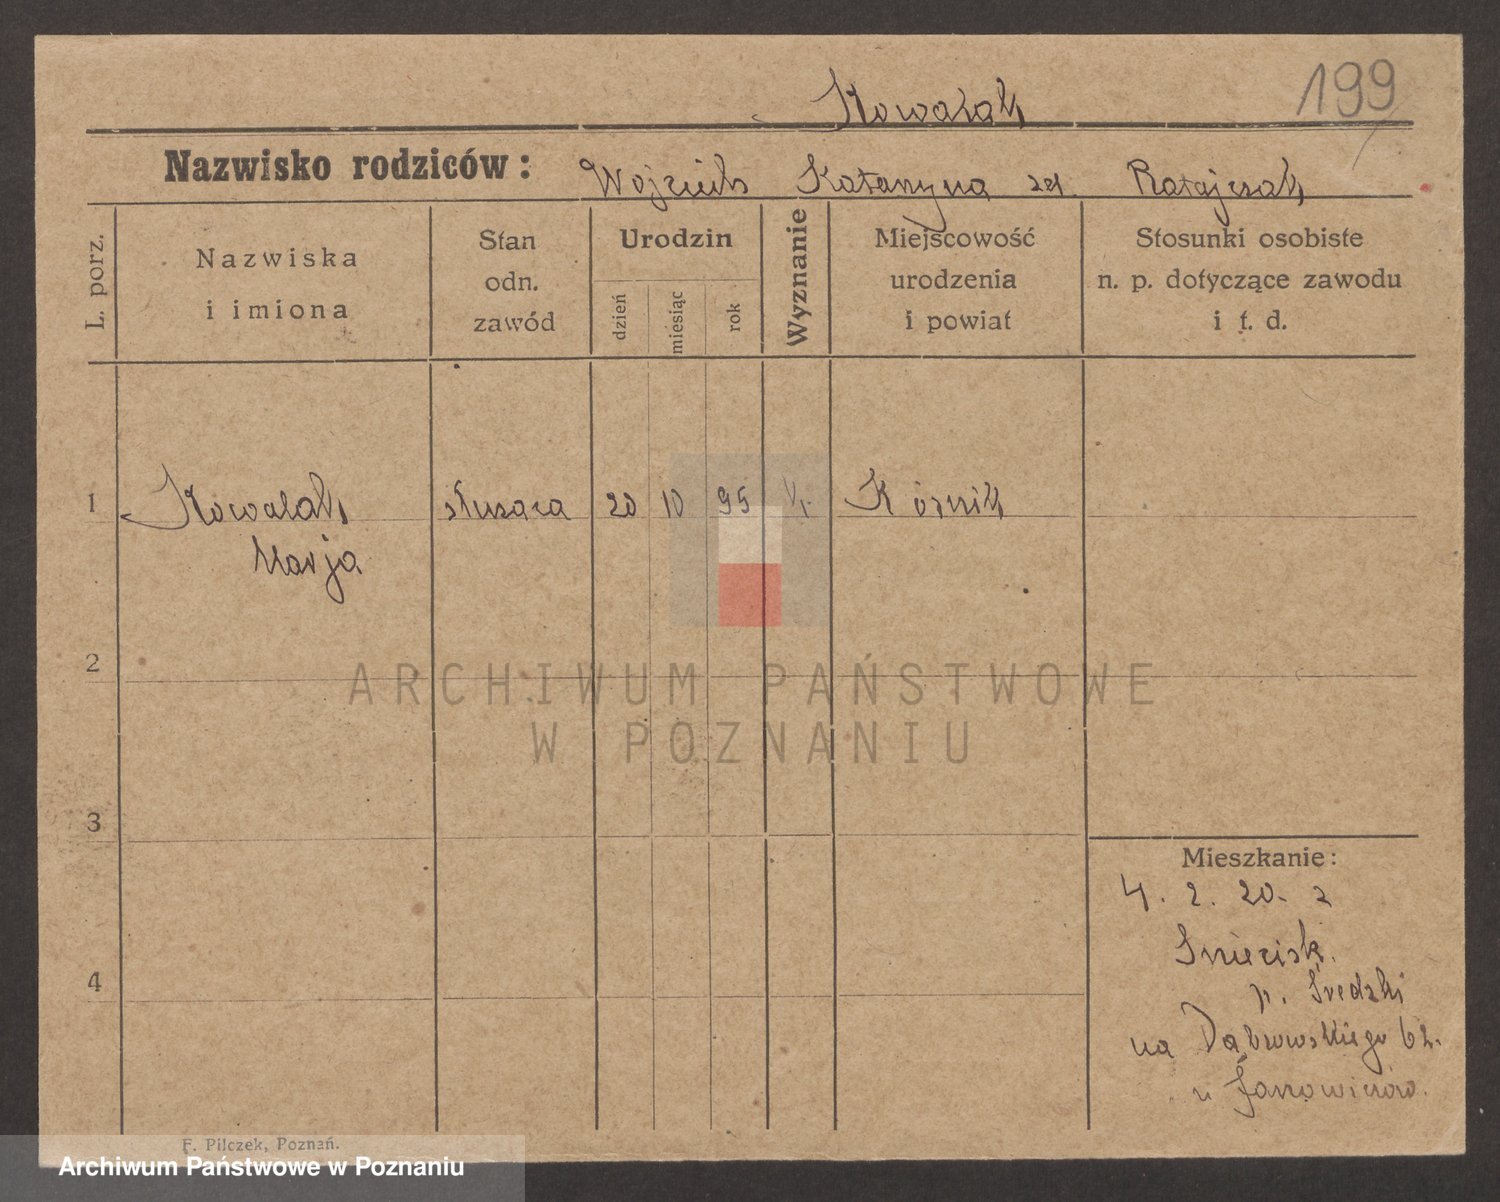 Kowalak
199
Nazwisko rodziców: Wojciech Katarzyna zd. Ratajczak
L. porz.
Nazwiska
i imiona
Stan
odn.
zawód
Urodzin
dzień
miesiąc
rok
Wyznanie
Miejscowość
urodzenia
i powiat
Stosunki osobiste
n. p. dotyczące zawodu
i t. d.
1 Kowalak służąca 20 10 95 Kórnik
Marja
2
ARCHIWUM PAŃSTWOWE
W POZNANIU
3
Mieszkanie:
4. 2. 20. z
4
p. Średzki
na Dąbrowskiego 62.
u Janowiczów.
F. Pilczek, Poznań.
Archiwum Państwowe w Poznaniu